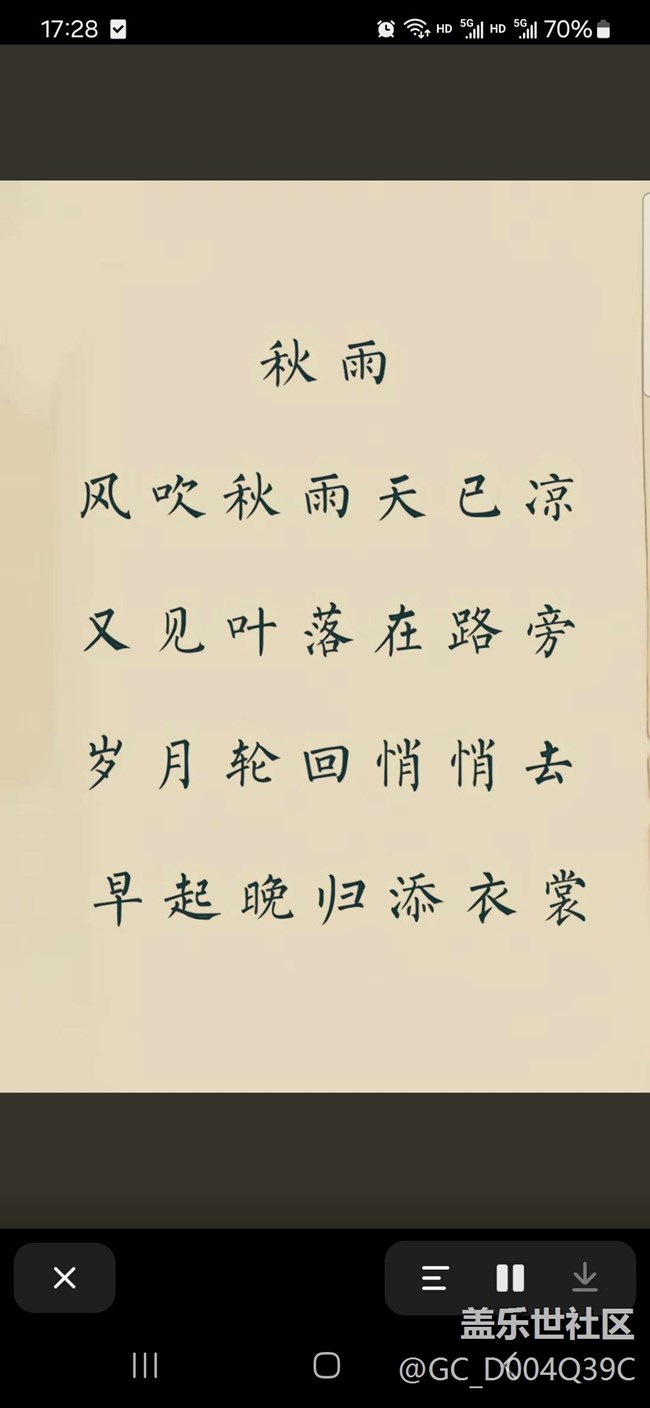 17:28 HD 5G HD 5G 70%
秋雨
风吹秋雨天已凉
又见叶落在路旁
岁月轮回悄悄去
早起晚归添衣裳
盖乐世社区
@GC_D004Q39C